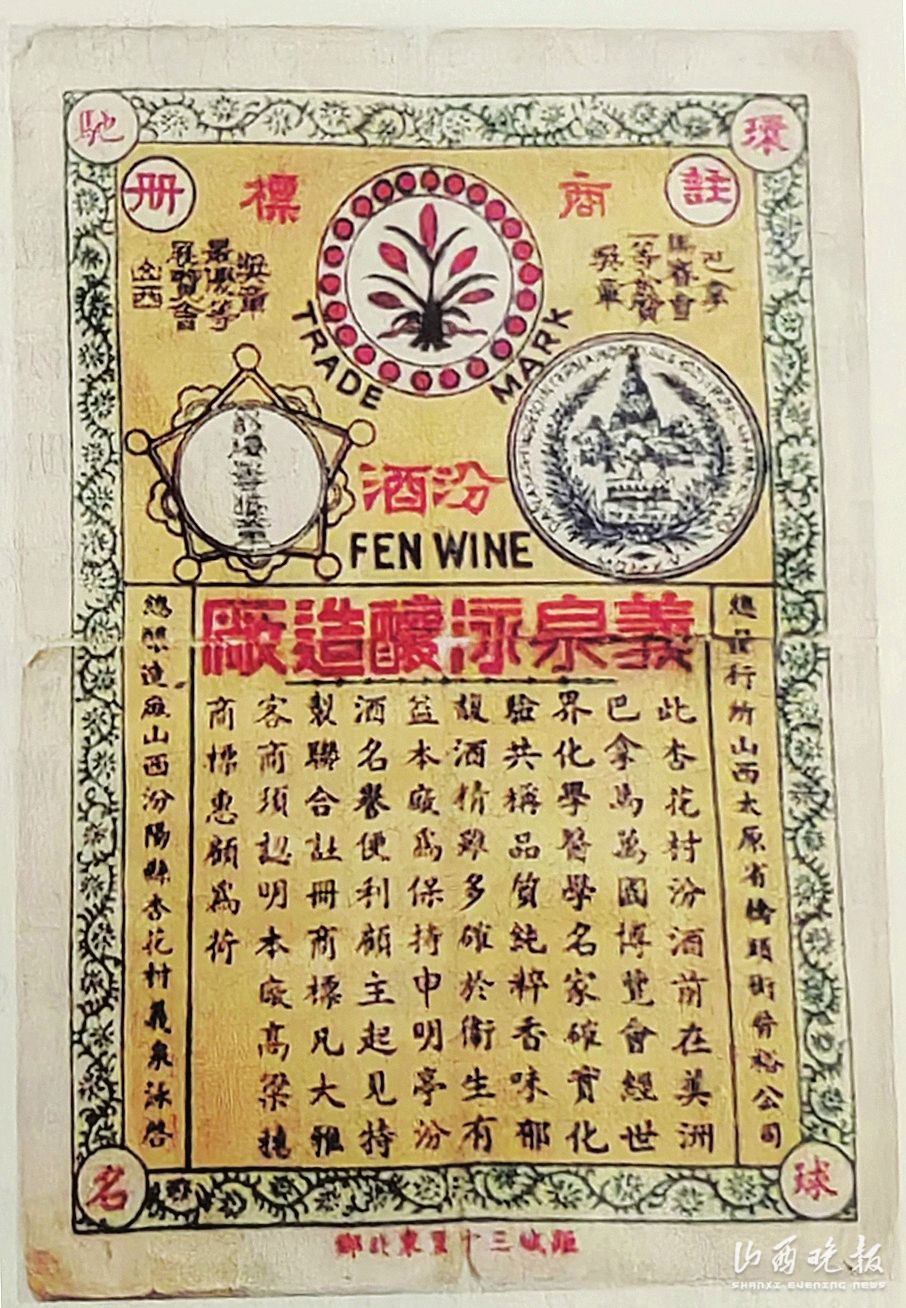 環球馳名
註冊商標
巴拿
馬賽會
一等
獎章
獎章
最優等
展覽會
山西
TRADE MARK
汾酒
FEN WINE
義泉泳釀造廠
總發行所山西太原省橋頭街晉裕公司
此杏花村汾酒前在美洲
巴拿馬萬國博覽會經世
界化學醫學名家確實化
驗共稱品質純粹香味郁
馥酒精雖多確於衛生有
益本廠爲保持申明亭汾
酒名譽便利顧主起見特
製聯合註冊商標凡大雅
客商須認明本廠高粱穗
商標惠顧爲荷
總釀造廠山西汾陽縣杏花村義泉泳啓
距城三十里東北鄉
山西晚报
SHANXI EVENING NEWS